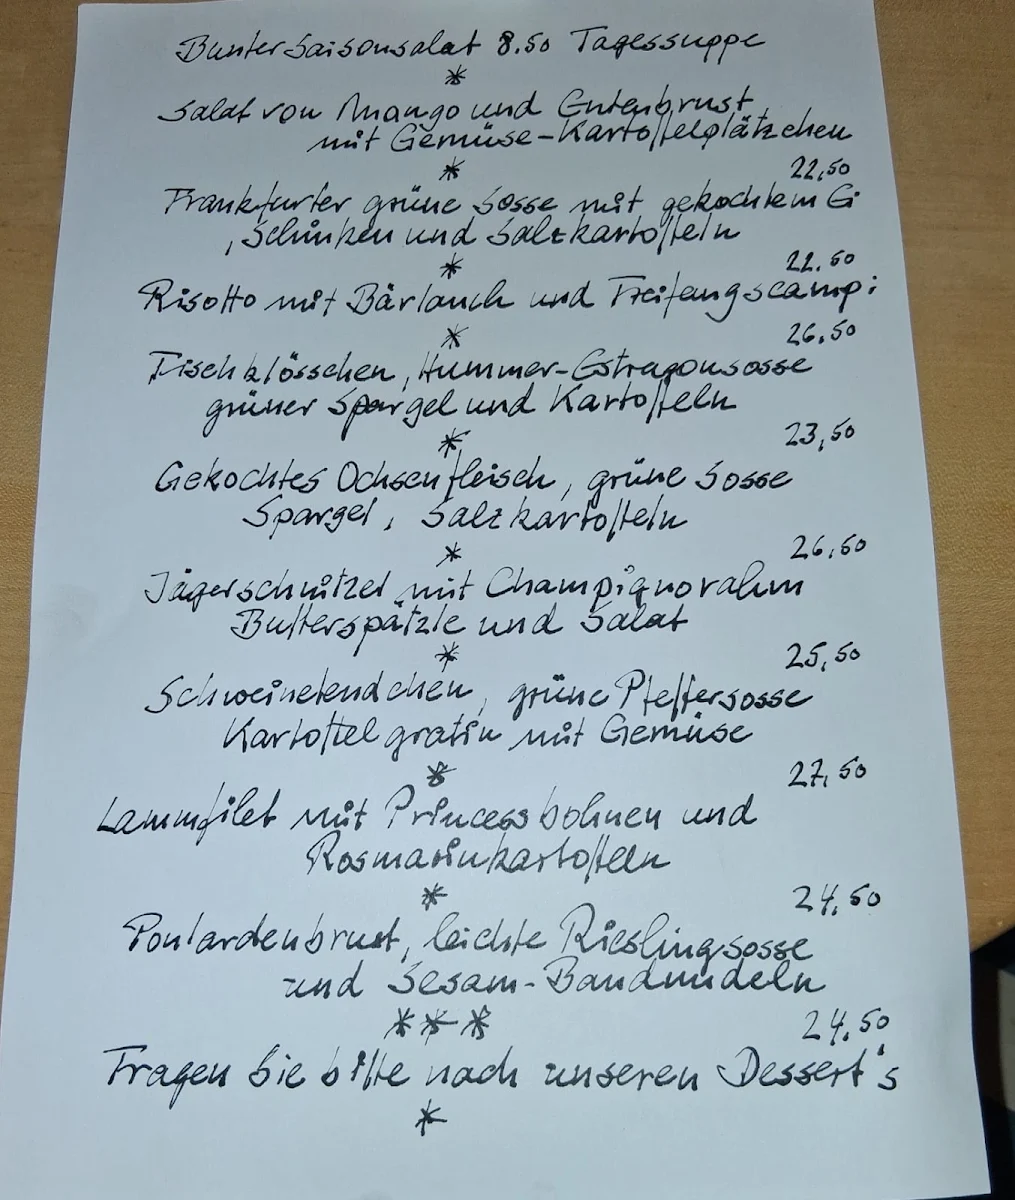 Bunter Saisonsalat 8.50 Tagessuppe
*
Salat von Mango und Entenbrust
mit Gemüse-Kartoffelplätzchen
* 22,50
Frankfurter grüne Sosse mit gekochtem Ei
, Schinken und Salzkartoffeln
* 22.50
Risotto mit Bärlauch und Freifangscampi
* 26,50
Fischklösschen, Hummer-Estragonsosse
grüner Spargel und Kartoffeln
* 23,50
Gekochtes Ochsenfleisch, grüne Sosse
Spargel, Salzkartoffeln
* 26,50
Jägerschnitzel mit Champignorahm
Butterspätzle und Salat
* 25,50
Schweinelendchen, grüne Pfeffersosse
Kartoffelgratin mit Gemüse
* 27,50
Lammfilet mit Princessbohnen und
Rosmarinkartoffeln
* 24,50
Poulardenbrust, leichte Rieslingsosse
und Sesam-Bandnudeln
*** 24.50
Fragen Sie bitte nach unseren Dessert's
*